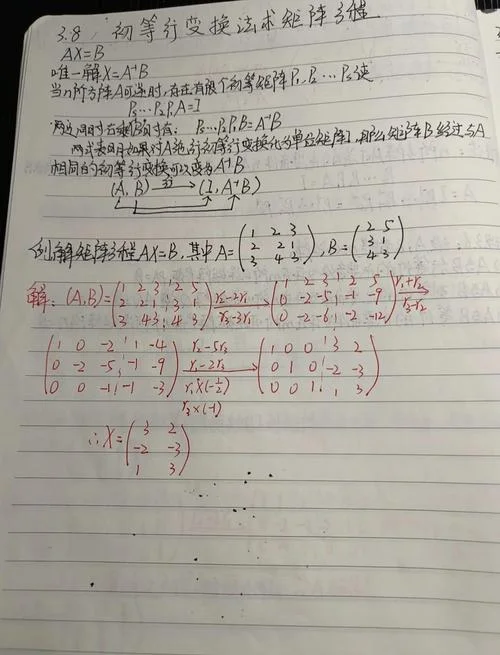 3.8 初等行变换法求矩阵方程
AX=B
唯一解X=A⁻¹B
当n阶方阵A可逆时,存在有限个初等矩阵P₁,P₂…Pₛ使
Pₛ…P₂P₁A=I
两边同时右乘B时有: Pₛ…P₂P₁B=A⁻¹B
两式表明如果对A施行初等行变换化为单位矩阵I,那么矩阵B经过与A
相同的初等行变换可以变为A⁻¹B
(A,B) 行→ (I,A⁻¹B)
例:解矩阵方程AX=B,其中A=(1 2 3; 2 2 1; 3 4 3),B=(2 5; 3 1; 4 3).
解:(A,B)=(1 2 3 ¦ 2 5; 2 2 1 ¦ 3 1; 3 4 3 ¦ 4 3) r₂-2r₁ r₃-3r₁ → (1 2 3 ¦ 2 5; 0 -2 -5 ¦ -1 -9; 0 -2 -6 ¦ -2 -12) r₁+r₂ r₃-r₂ →
(1 0 -2 ¦ 1 -4; 0 -2 -5 ¦ -1 -9; 0 0 -1 ¦ -1 -3) r₂-5r₃ r₁-2r₃ r₂×(-½) r₃×(-1) → (1 0 0 ¦ 3 2; 0 1 0 ¦ -2 -3; 0 0 1 ¦ 1 3)
∴X=(3 2; -2 -3; 1 3)